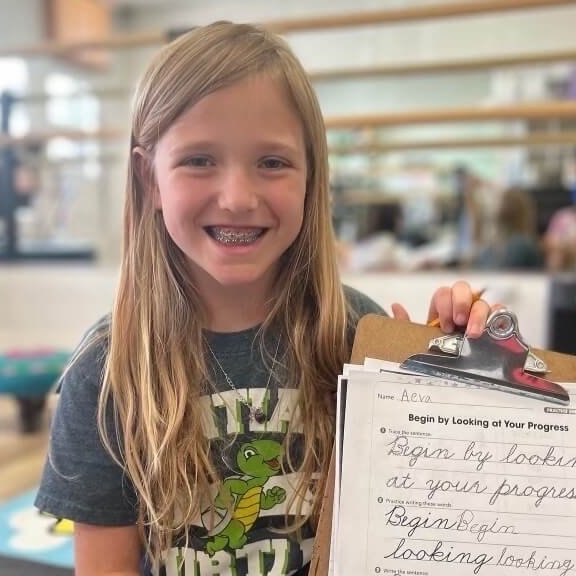 Name Aeva
Begin by Looking at Your Progress
1 Trace the sentence.
Begin by
at your progress
2 Practice writing these words.
Begin Begin
looking looking
3 Write the sentence